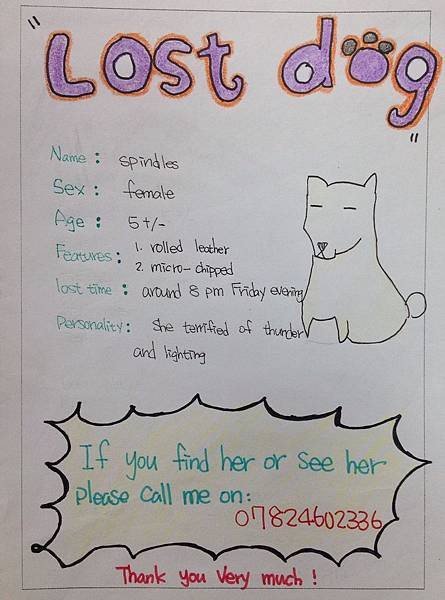 " Lost dog "
Name : spindles
Sex : female
Age : 5+/-
Features : 1. rolled leather
2. micro-chipped
lost time : around 8 pm Friday evening
Personality : She terrified of thunder
and lighting
If you find her or see her
please call me on:
07824602336
Thank you very much !